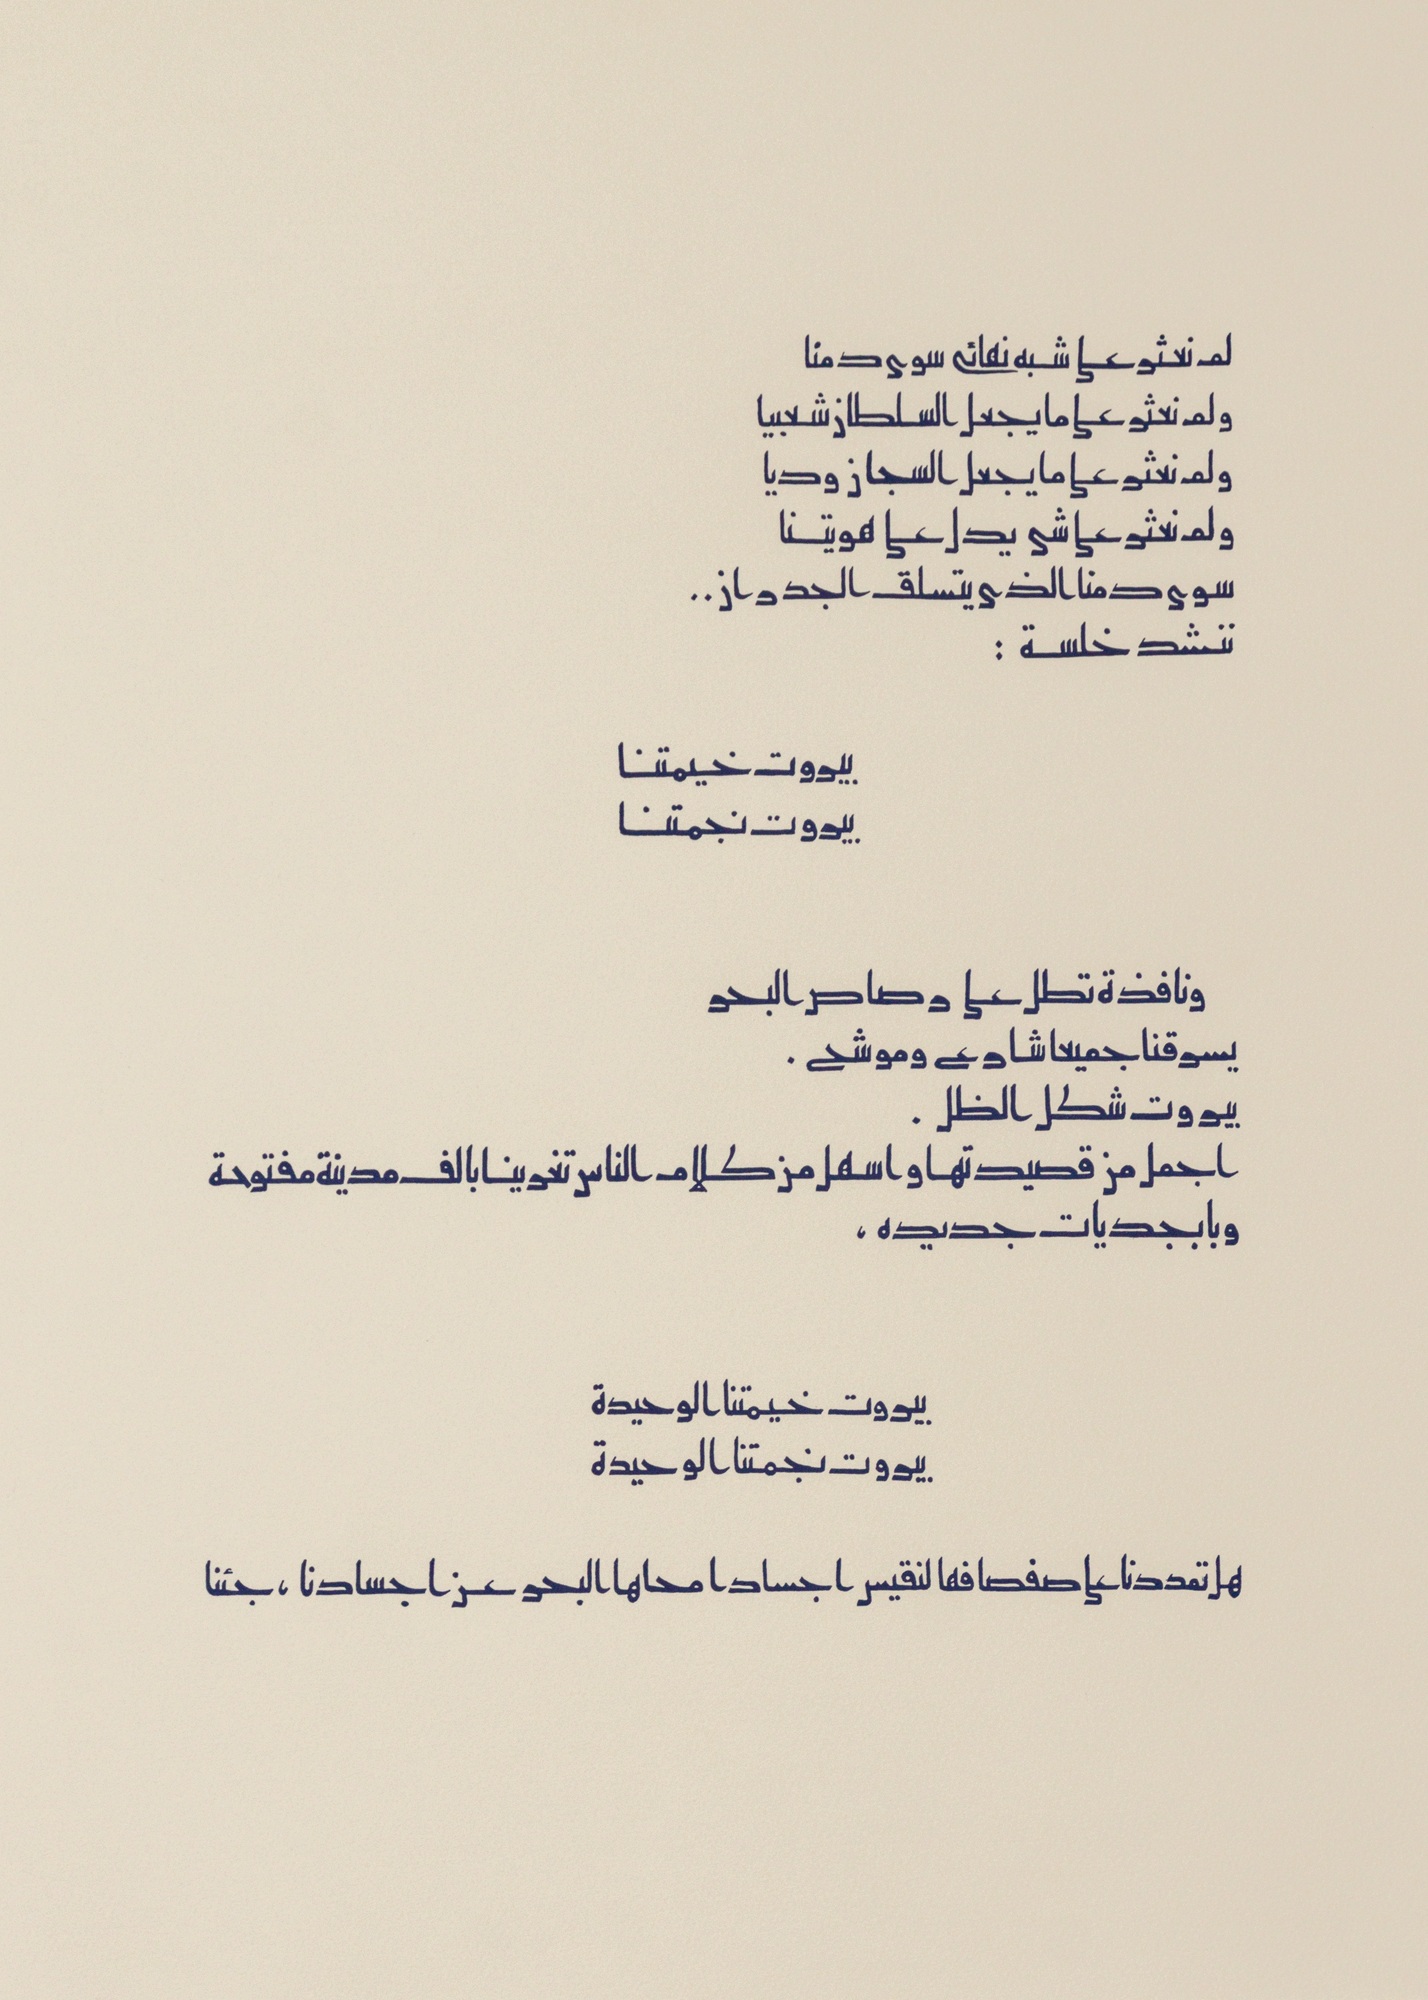 لم نعثر على شبه نهائي سوى دمنا
ولم نعثر على ما يجعل السلطان شعبيا
ولم نعثر على ما يجعل السجان وديا
ولم نعثر على شي يدل على هويتنا
سوى دمنا الذي يتسلق الجدران..
ننشد خلسة :
بيروت خيمتنا
بيروت نجمتنا
ونافذة تطل على رصاص البحر
يسرقنا جميعا شارع وموشح .
بيروت شكل الظل .
اجمل من قصيدتها واسهل من كلام الناس تغرينا بالف مدينة مفتوحة
وبابجديات جديده ،
بيروت خيمتنا الوحيدة
بيروت نجمتنا الوحيدة
هل تمددنا على صفصافها لنقيس اجسادا محاها البحر عن اجسادنا ، جئنا